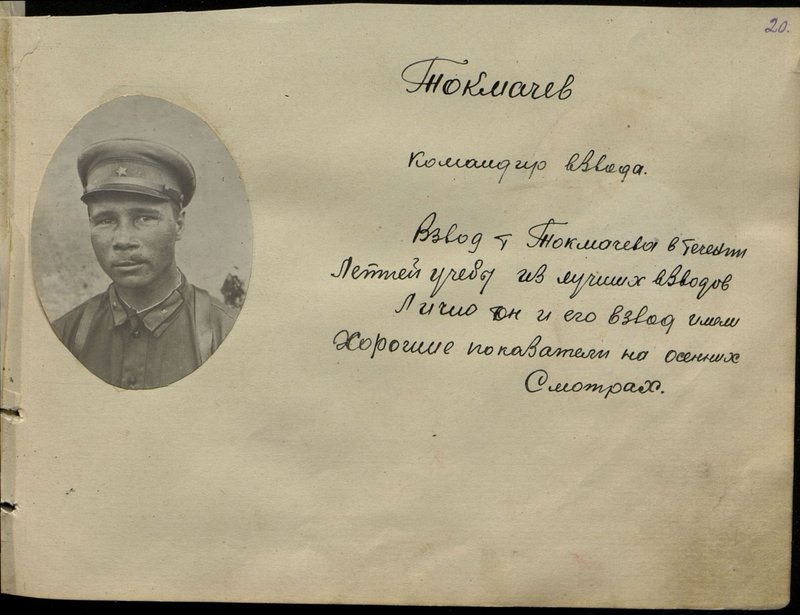 20.
Токмачев
Командир взвода.
Взвод т Токмачева в течении
Летней учебы из лучших взводов
Лично он и его взвод имели
Хорошие показатели на осенних
Смотрах.